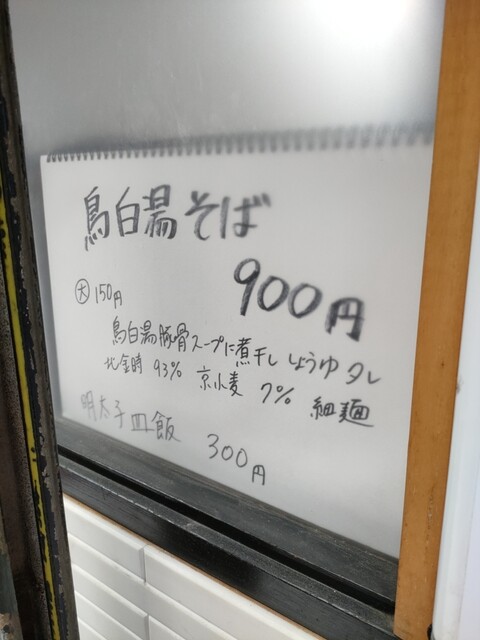 鳥白湯そば
900円
大 150円
鳥白湯豚骨スープに煮干ししょうゆタレ
北金時 93% 京小麦 7% 細麺
明太子皿飯 300円